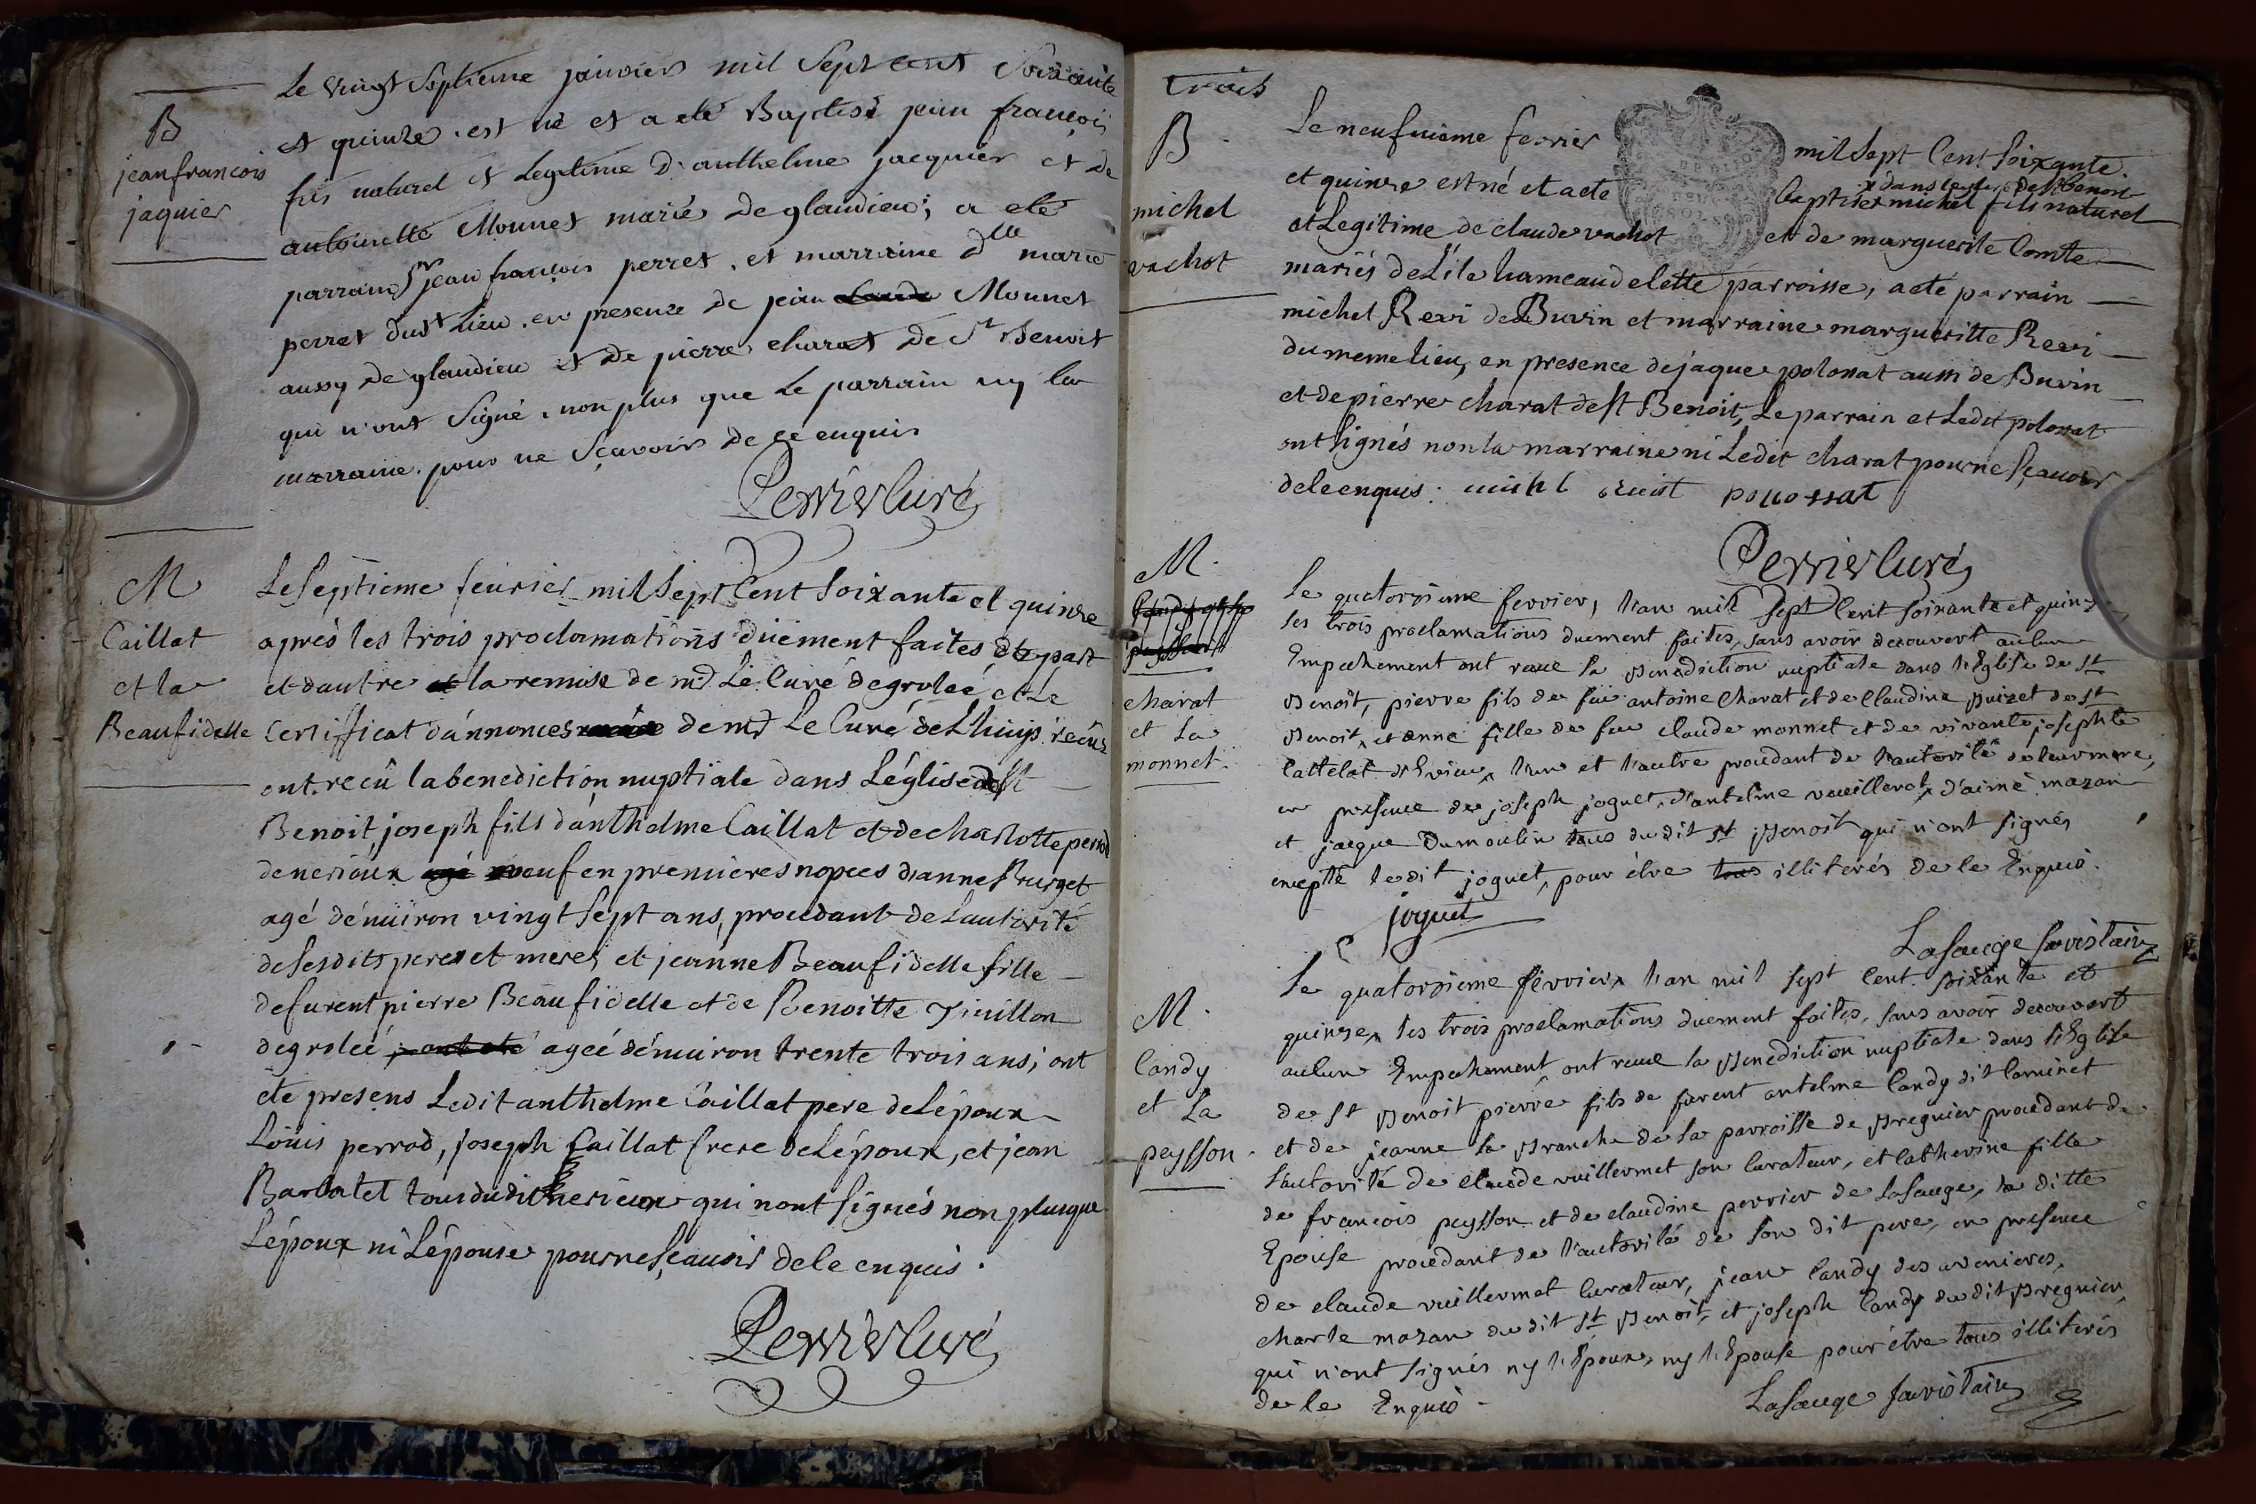 Le vingt septieme janvier mil sept cent soixante
B
et quinze est né et a eté Baptisé jean françois
jean francois
fils naturel et Legitime d'anthelme jacquier et de
jaquier
antoinette Monnet mariés de glandieu; a eté
parrain Sr jean françois perret, et marraine dlle marie
perret dudt Lieu, en presence de jean Monnet
aussy de glandieu et de pierre charat de St Benoit
qui n'ont signé, non plus que Le parrain ny la
marraine pour ne sçavoir de ce enquis
Perrier Curé
M
Caillat
et la
Beaufidelle
Le septieme fevrier mil sept Cent soixante et quinze
aprés les trois proclamations düement faites de part
et dautre la remise de mr Le Curé de groleé, et Le
Certifficat dánnonces de mr Le Curé de Lhuys recûs
ont recû la benediction nuptiale dans Léglise de st
Benoit, joseph fils dánthelme Caillat et de charlotte perrod
de nerieux veuf en premieres nopces dianne Burget
agé dénuiron vingt sept ans, procedant de Lautorité
de sesdits peres et meres, et jeanne Beaufidelle fille
defurent pierre Beaufidelle et de Benoitte
de groleé, ageé dénuiron trente trois ans; ont
ete presens Ledit anthelme Caillat pere de Lépoux
Loüis perrod, joseph Caillat frere de Lépoux, et jean
Barbatet tous dudit nerieux qui nont signés non plusque
Lépoux ni Lépouse pour ne sçauoir de le enquis.
Perrier Curé
trois
B
michel
vachot
Le neufuieme fevrier mil sept Cent soixante
et quinze est né et a ete Baptisé x michel fils naturel
x dans de st benoit
et Legitime de claude vachot et de marguerite Comte
mariés de L'ile hameau de cette parroisse, a ete parrain
michel Revi de Buvin et marraine margueritte Revi
du meme lieu, en presence de jaque polossat aussi de Buvin
et de pierre charat de st Benoit, Le parrain et Ledit polossat
ont signés non la marraine ni Ledit charat pour ne sçauoir
de le enquis: polossat
Perrier Curé
M.
charat
et La
monnet.
Le quatorzieme fevrier, l'an mil sept Cent soixante et quinze
les trois proclamations duement faites, sans avoir decouvert aucun
Empechement ont recue la Benediction nuptiale dans l'Eglise de st
Benoit, pierre fils de feu antoine Charat et de Claudine de st
Benoit, et anne fille de feu claude monnet et de vivante josephte
Cattelat l'un et l'autre procedant de l'autorité de leur mere,
en presence de joseph joguet, d'antelme vueillerot, d'aimé mazan
et jacque Dumoulin tous du dit st Benoit qui n'ont signés
excepté le dit joguet, pour être tous illiterés de le Enquis.
joguet
Lasauge sacristain
M.
Candy
et La
peysson.
Le quatorzieme fevrier, l'an mil sept Cent. soixante et
quinze, les trois proclamations duement faites, sans avoir decouvert
aucun Empechement, ont recue la Benediction nuptiale dans l'Eglise
de st Benoit pierre fils de furent antelme Candy dit Caminet
et de jeanne la Branche de la parroisse de Bregnier procedant de
l'autorité de claude vuillermet son Curateur, et Catherine fille
de françois peysson et de claudine perrier de Lasauge, la ditte
Epouse procedant de l'autorité de son dit pere, en presence
de claude vuillermet Curateur, jean Candy des avenieres,
charle mazan du dit st Benoit, et joseph Candy du dit Bregnier
qui n'ont signés ny l'Epoux, ny l'Epouse pour être tous illiterés
de le Enquis.
Lasauge sacristain